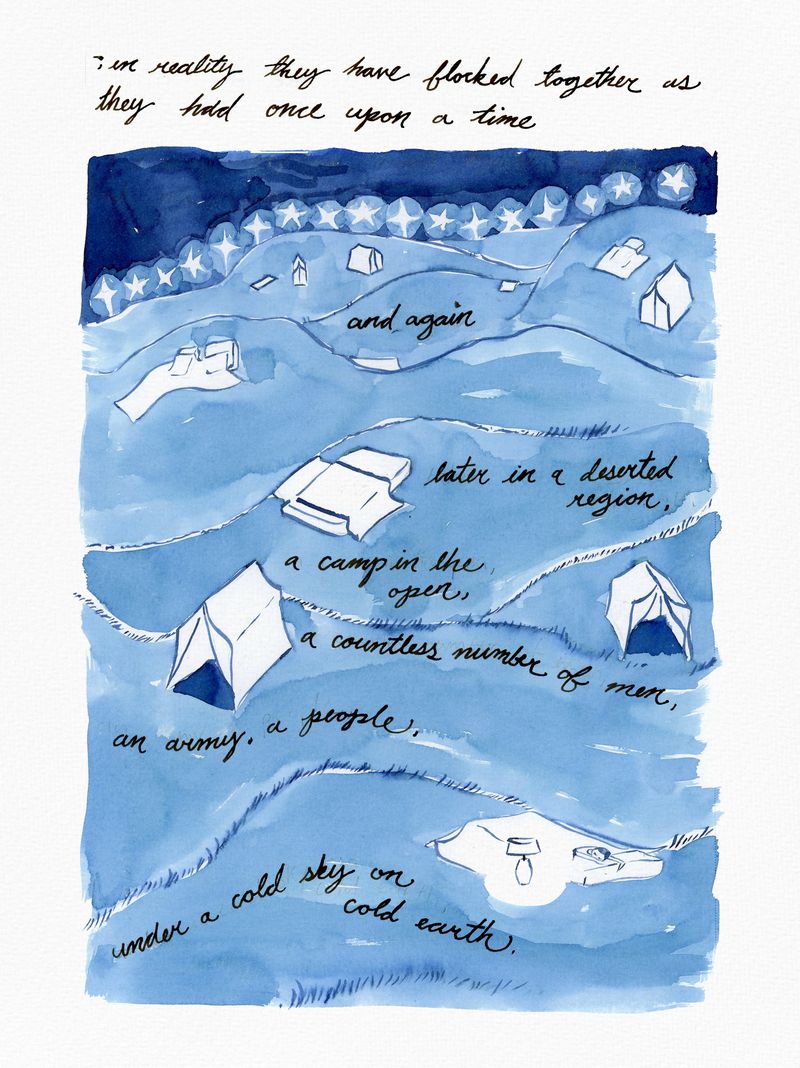 ; in reality they have flocked together as
they had once upon a time
and again
later in a deserted
region,
a camp in the
open,
a countless number of men,
an army, a people,
under a cold sky on
cold earth.